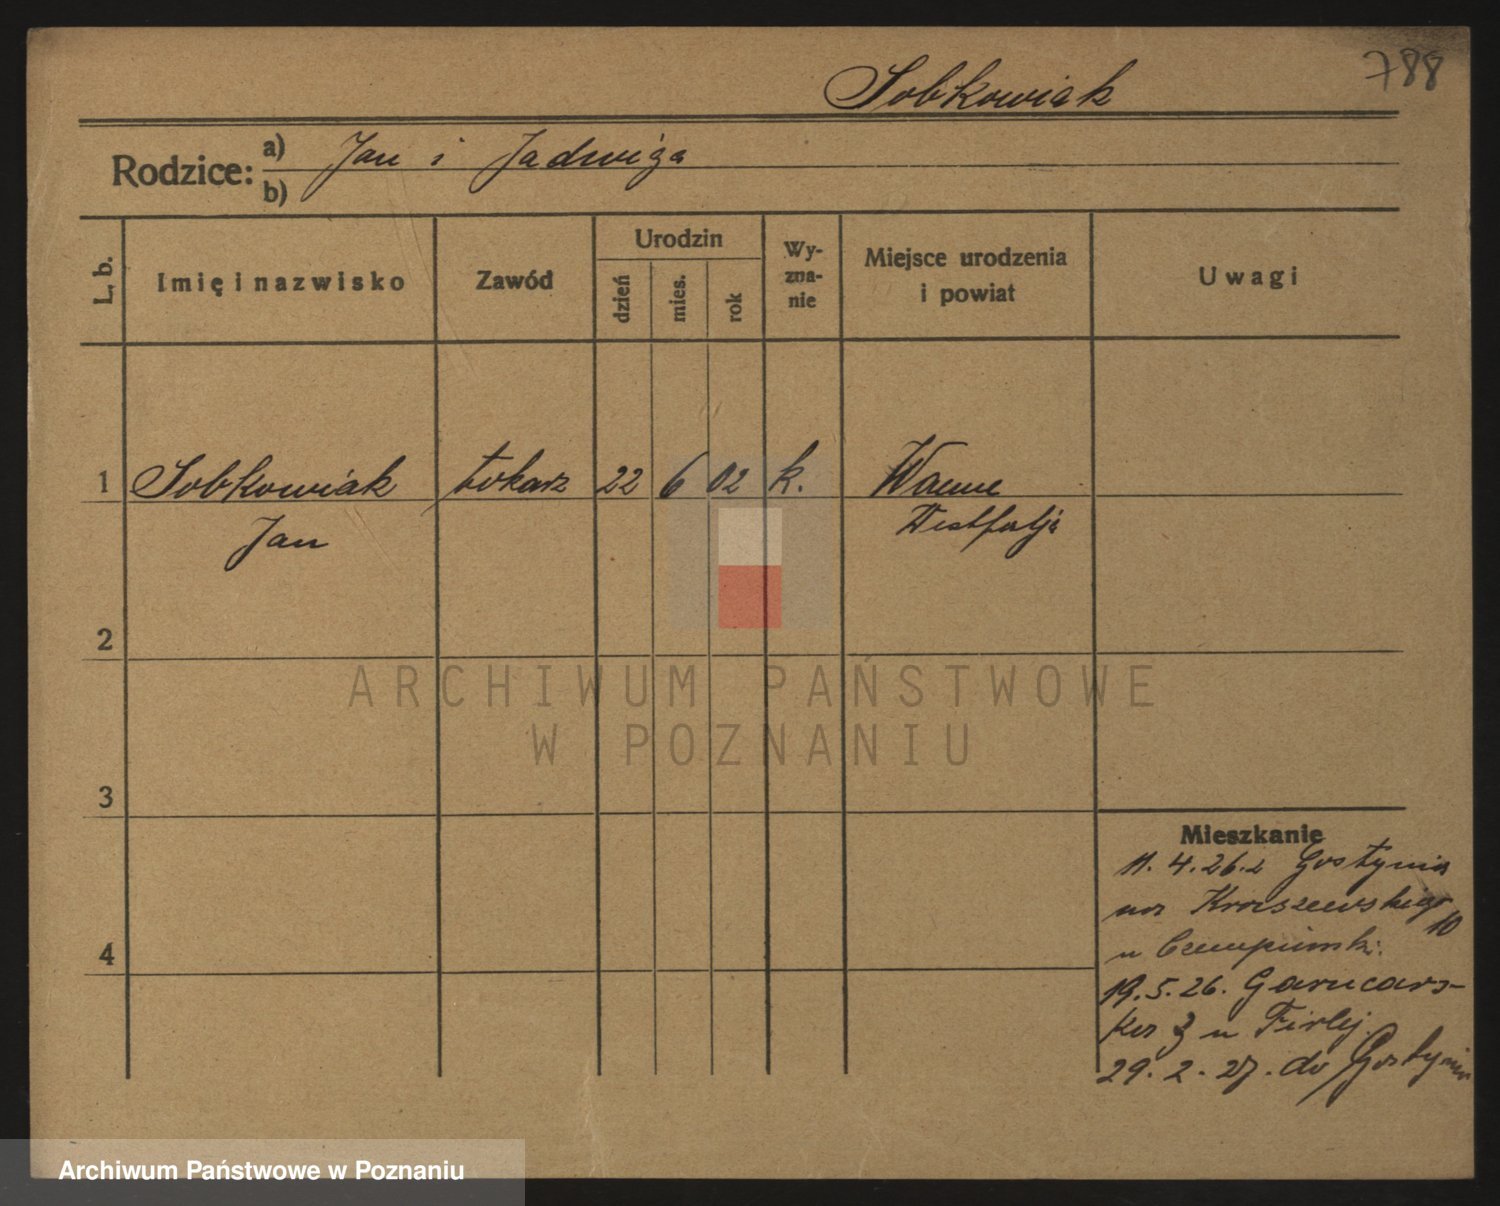 Sobkowiak
788
Rodzice:
a) Jan i Jadwiga
b)
L. b.
Imię i nazwisko
Zawód
Urodzin
dzień
mies.
rok
Wy-
zna-
nie
Miejsce urodzenia
i powiat
Uwagi
1 Sobkowiak tokarz 22 6 02 k. Wanne
Jan Westfalja
2
3
4
Mieszkanie
11.4.26. z Gostynia
na Kraszewskiego 10
u
19.5.26. Garncars-
ka 3 u Firlej.
29.2.27. do Gostynia
ARCHIWUM PAŃSTWOWE
W POZNANIU
Archiwum Państwowe w Poznaniu